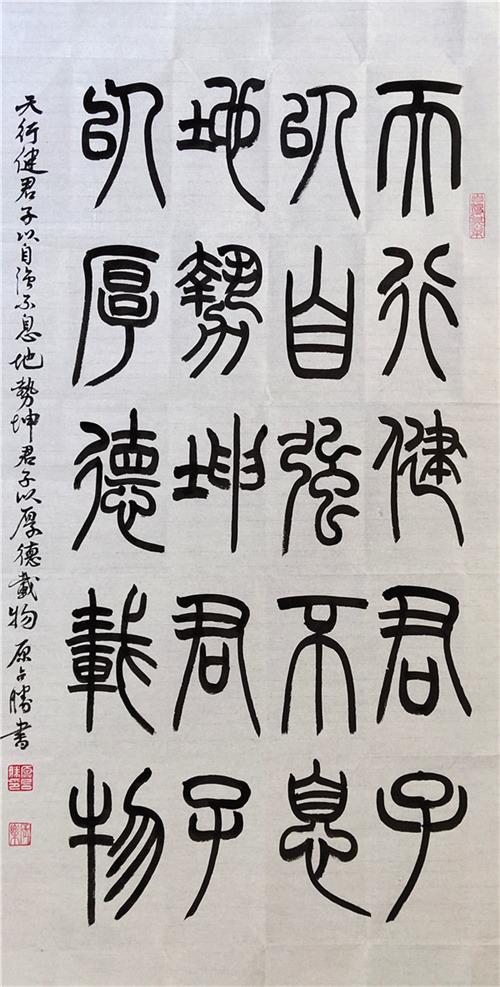 天行健君子
以自强不息
地勢坤君子
以厚德載物
天行健君子以自强不息地勢坤君子以厚德載物 原占勝書